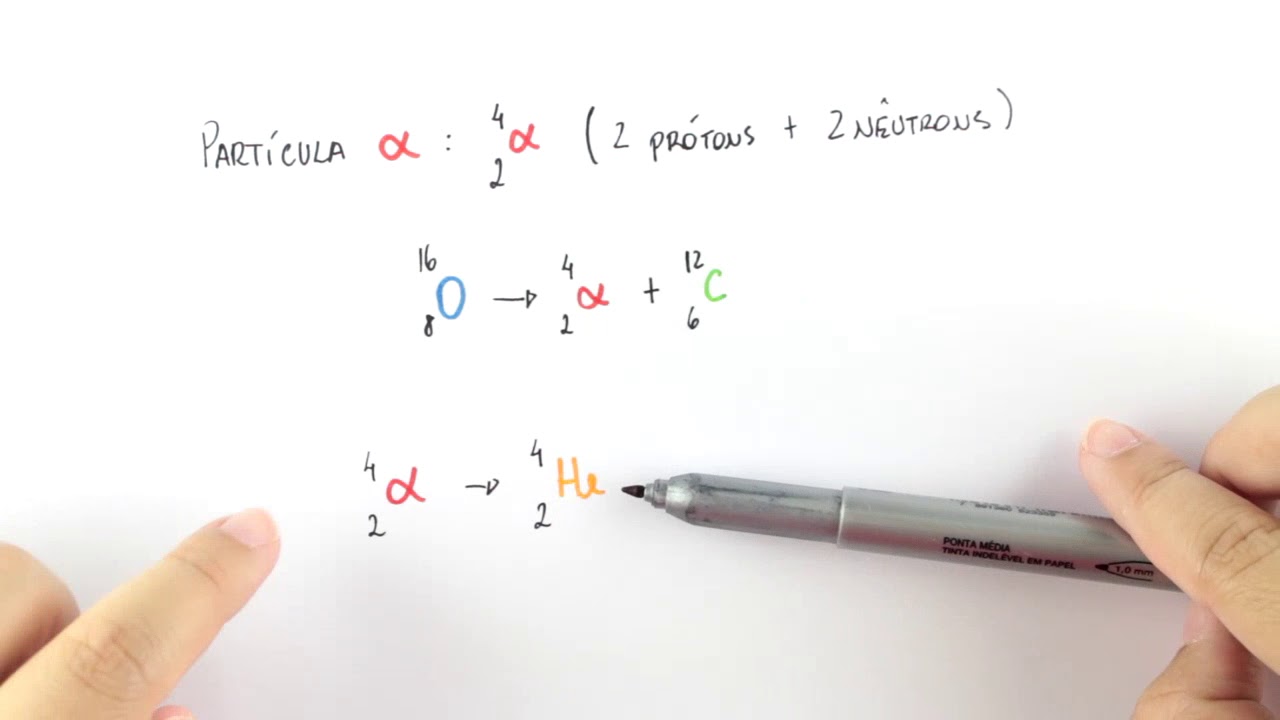 PARTÍCULA α : ⁴₂α ( 2 PRÓTONS + 2 NÊUTRONS )
¹⁶₈O → ⁴₂α + ¹²₆C
⁴₂α → ⁴₂He
PONTA MÉDIA
TINTA INDELÉVEL EM PAPEL
1,0 mm